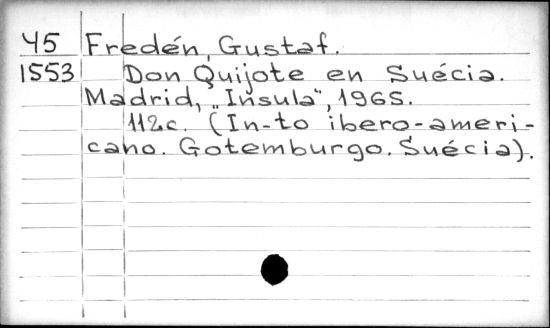 45 Fredén, Gustaf.
1553 Don Quijote en Suécia.
Madrid, „Insula“, 1965.
112c. (In-to ibero-ameri-
cano. Gotemburgo. Suécia).